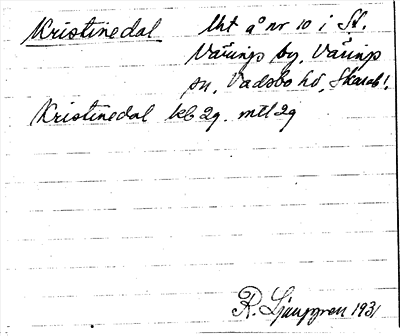 Kristinedal Uht å nr 10 i St.
Väringe by, Väringe
sn, Vadsbo hd, Skarab!.
Kristinedal kb 2g. mtl 2g
R. Ljunggren 1931